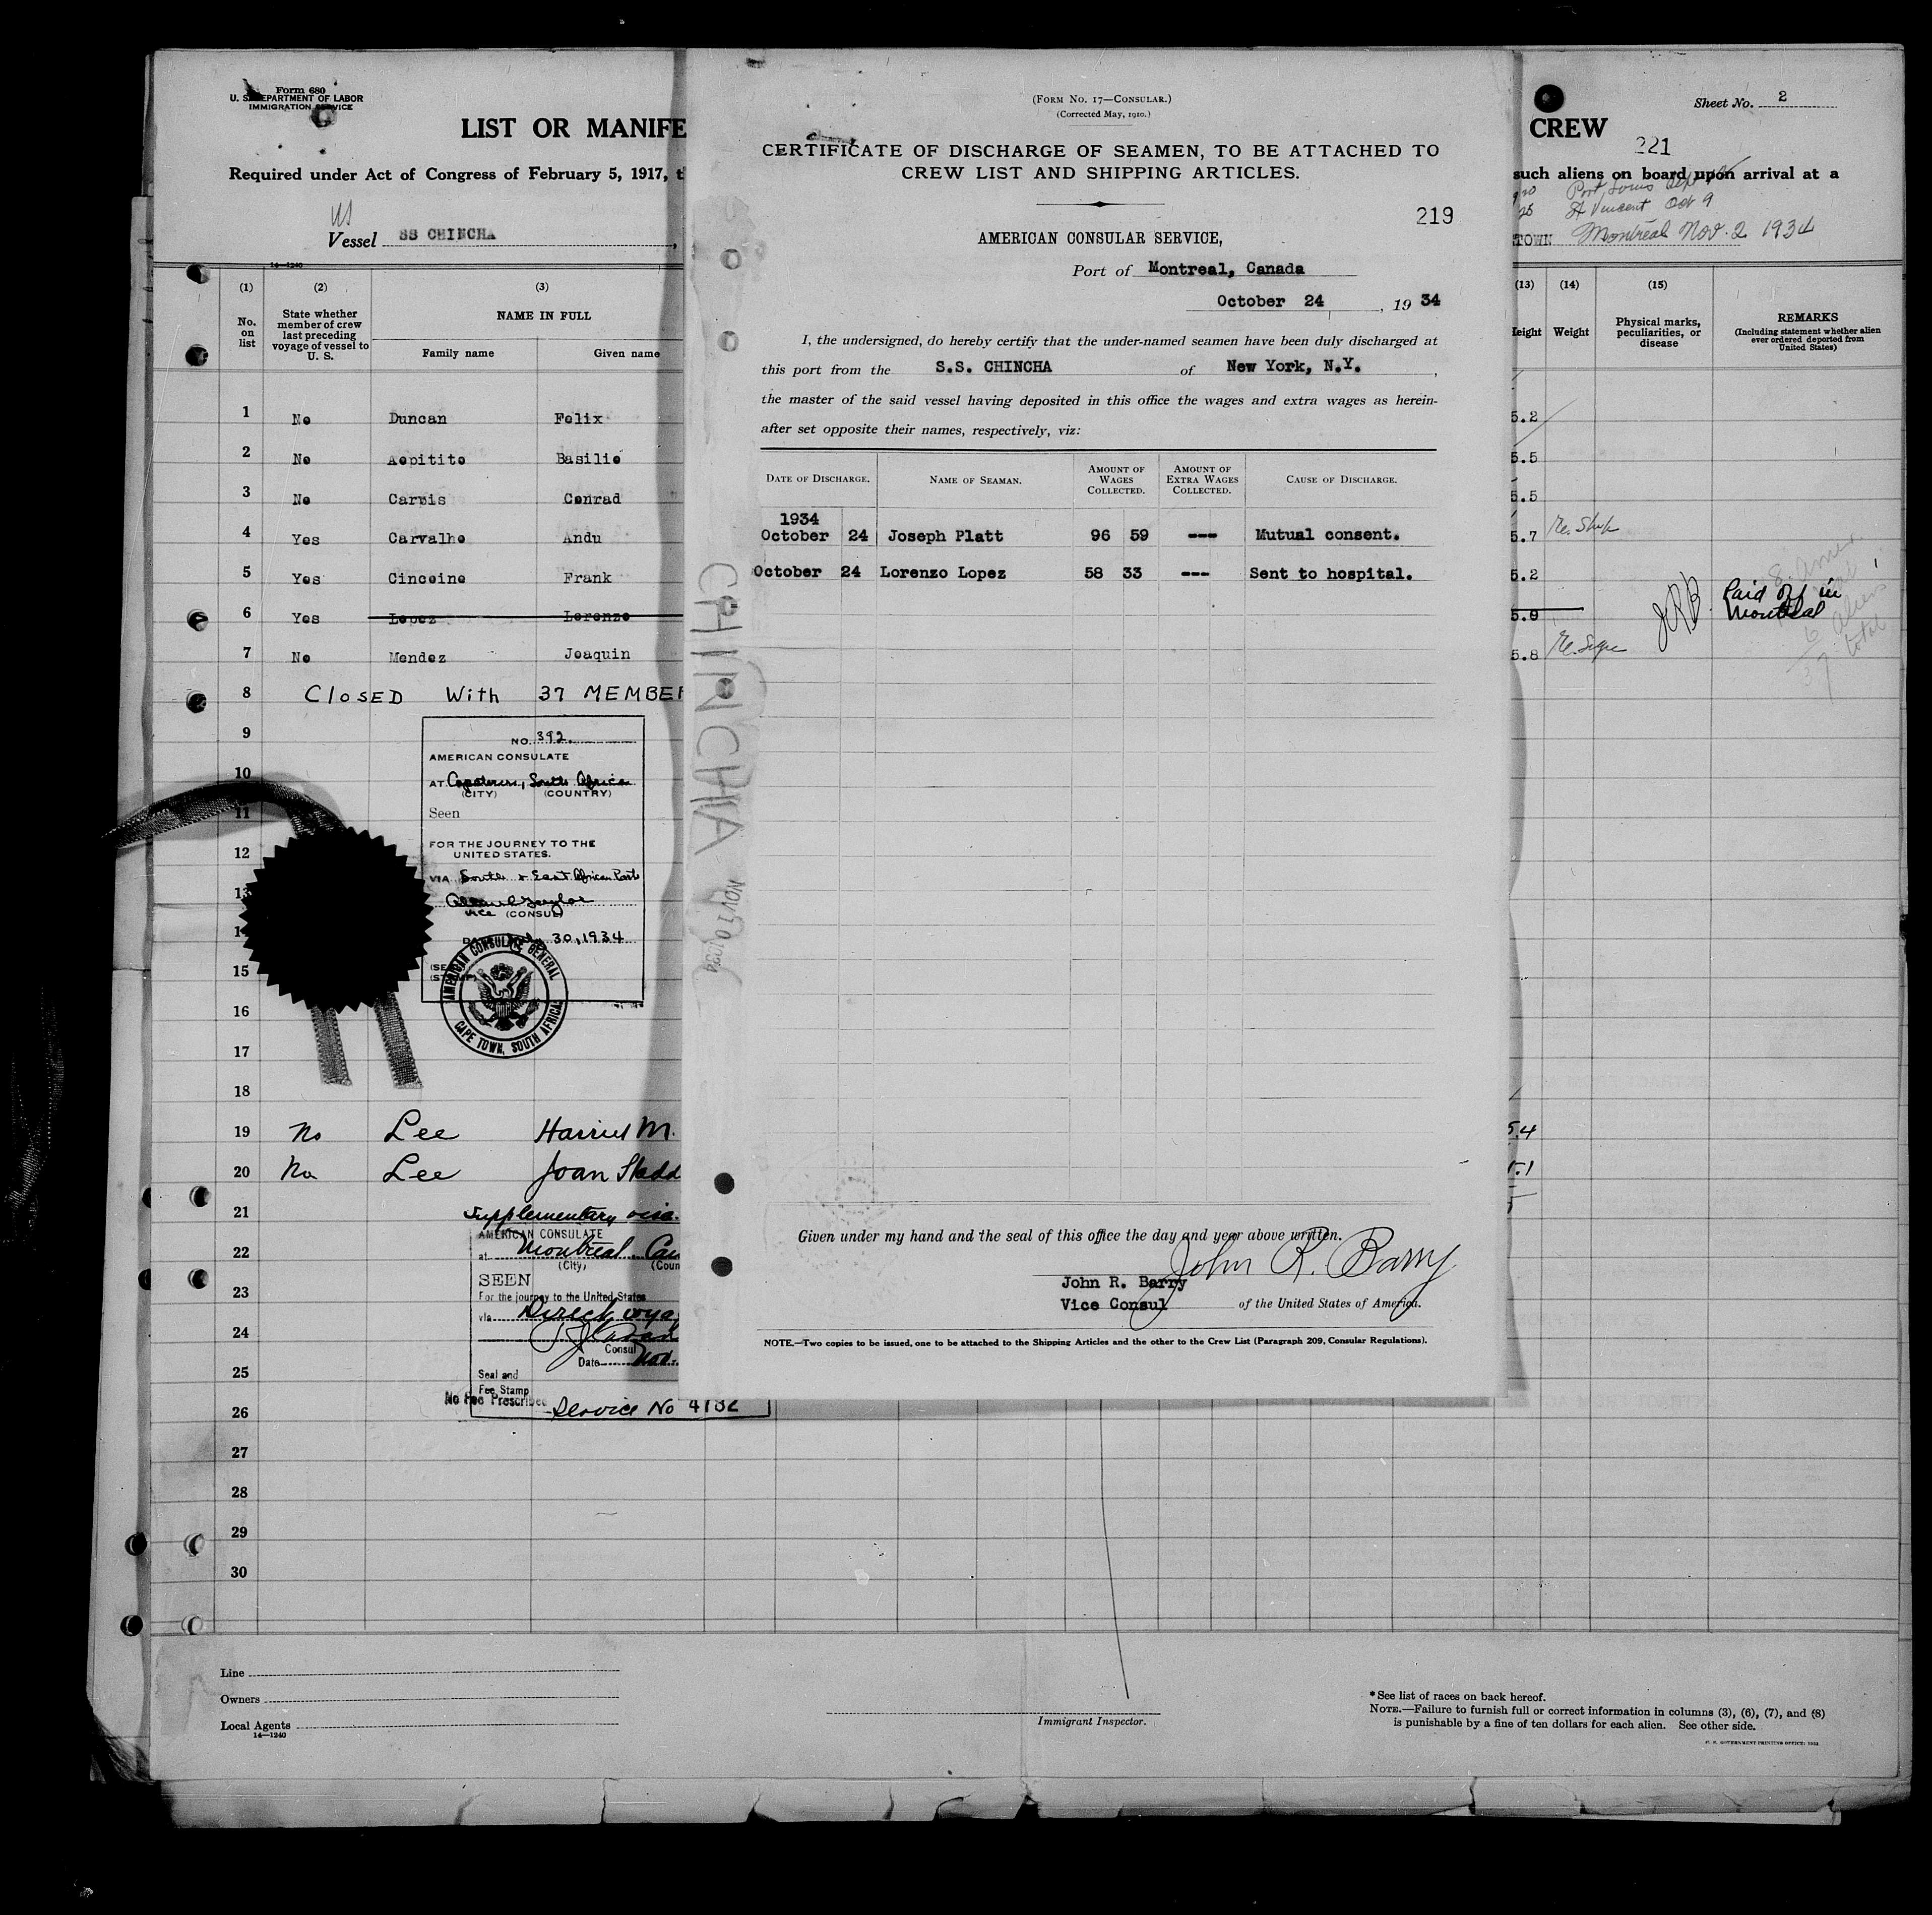 Form 680
U. S. DEPARTMENT OF LABOR
IMMIGRATION SERVICE
LIST OR MANIFE
Required under Act of Congress of February 5, 1917, t
US
Vessel SS CHINCHA
14—1240
(1) (2) (3)
No. on list
State whether member of crew last preceding voyage of vessel to U. S.
NAME IN FULL
Family name Given name
1 No Duncan Felix
2 No Aopitito Basilio
3 No Carvis Conrad
4 Yes Carvalho Andu
5 Yes Cincoine Frank
6 Yes Lopez Lorenzo
7 No Mendez Joaquin
8 CLOSED With 37 MEMBER
9
10
11
12
13
15
16
17
18
19 No Lee Harriet M.
20 No Lee Joan
21
22
23
24
25
26
27
28
29
30
NO. 392.
AMERICAN CONSULATE
AT Capetown, South Africa
(CITY) (COUNTRY)
Seen
FOR THE JOURNEY TO THE
UNITED STATES.
VIA South & East African Ports
Vice (CONSUL)
30, 1934
AMERICAN CONSULATE GENERAL
CAPE TOWN, SOUTH AFRICA
Supplementary visa.
AMERICAN CONSULATE
at Montreal, Can
(City) (Coun
SEEN
For the journey to the United States
via Direct voya
Consul
Date Nov.
Seal and
Fee Stamp
No Fee Prescribed
Service No 4782
Line
Owners
Local Agents
14—1240
Immigrant Inspector.
(FORM NO. 17—CONSULAR.)
(Corrected May, 1910.)
CERTIFICATE OF DISCHARGE OF SEAMEN, TO BE ATTACHED TO
CREW LIST AND SHIPPING ARTICLES.
219
AMERICAN CONSULAR SERVICE,
Port of Montreal, Canada
October 24, 19 34
I, the undersigned, do hereby certify that the under-named seamen have been duly discharged at
this port from the S.S. CHINCHA of New York, N.Y.,
the master of the said vessel having deposited in this office the wages and extra wages as herein-
after set opposite their names, respectively, viz:
DATE OF DISCHARGE. NAME OF SEAMAN. AMOUNT OF WAGES COLLECTED. AMOUNT OF EXTRA WAGES COLLECTED. CAUSE OF DISCHARGE.
1934
October 24 Joseph Platt 96 59 --- Mutual consent.
October 24 Lorenzo Lopez 58 33 --- Sent to hospital.
CHINCHA NOV 10 1934
Given under my hand and the seal of this office the day and year above written.
John R. Barry
John R. Barry
Vice Consul of the United States of America.
NOTE.—Two copies to be issued, one to be attached to the Shipping Articles and the other to the Crew List (Paragraph 209, Consular Regulations).
Sheet No. 2
CREW
221
such aliens on board upon arrival at a
Port Louis Sept
St Vincent Oct 9
TOWN Montreal Nov. 2 1934
(13) (14) (15)
Height Weight
Physical marks, peculiarities, or disease
REMARKS
(Including statement whether alien ever ordered deported from United States)
5.2
5.5
5.5
5.7
5.2
5.9 JRB Paid off in Montreal
5.8
8 Amer
aliens
37 total
5.4
5.1
* See list of races on back hereof.
NOTE.—Failure to furnish full or correct information in columns (3), (6), (7), and (8)
is punishable by a fine of ten dollars for each alien. See other side.
U. S. GOVERNMENT PRINTING OFFICE: 1932